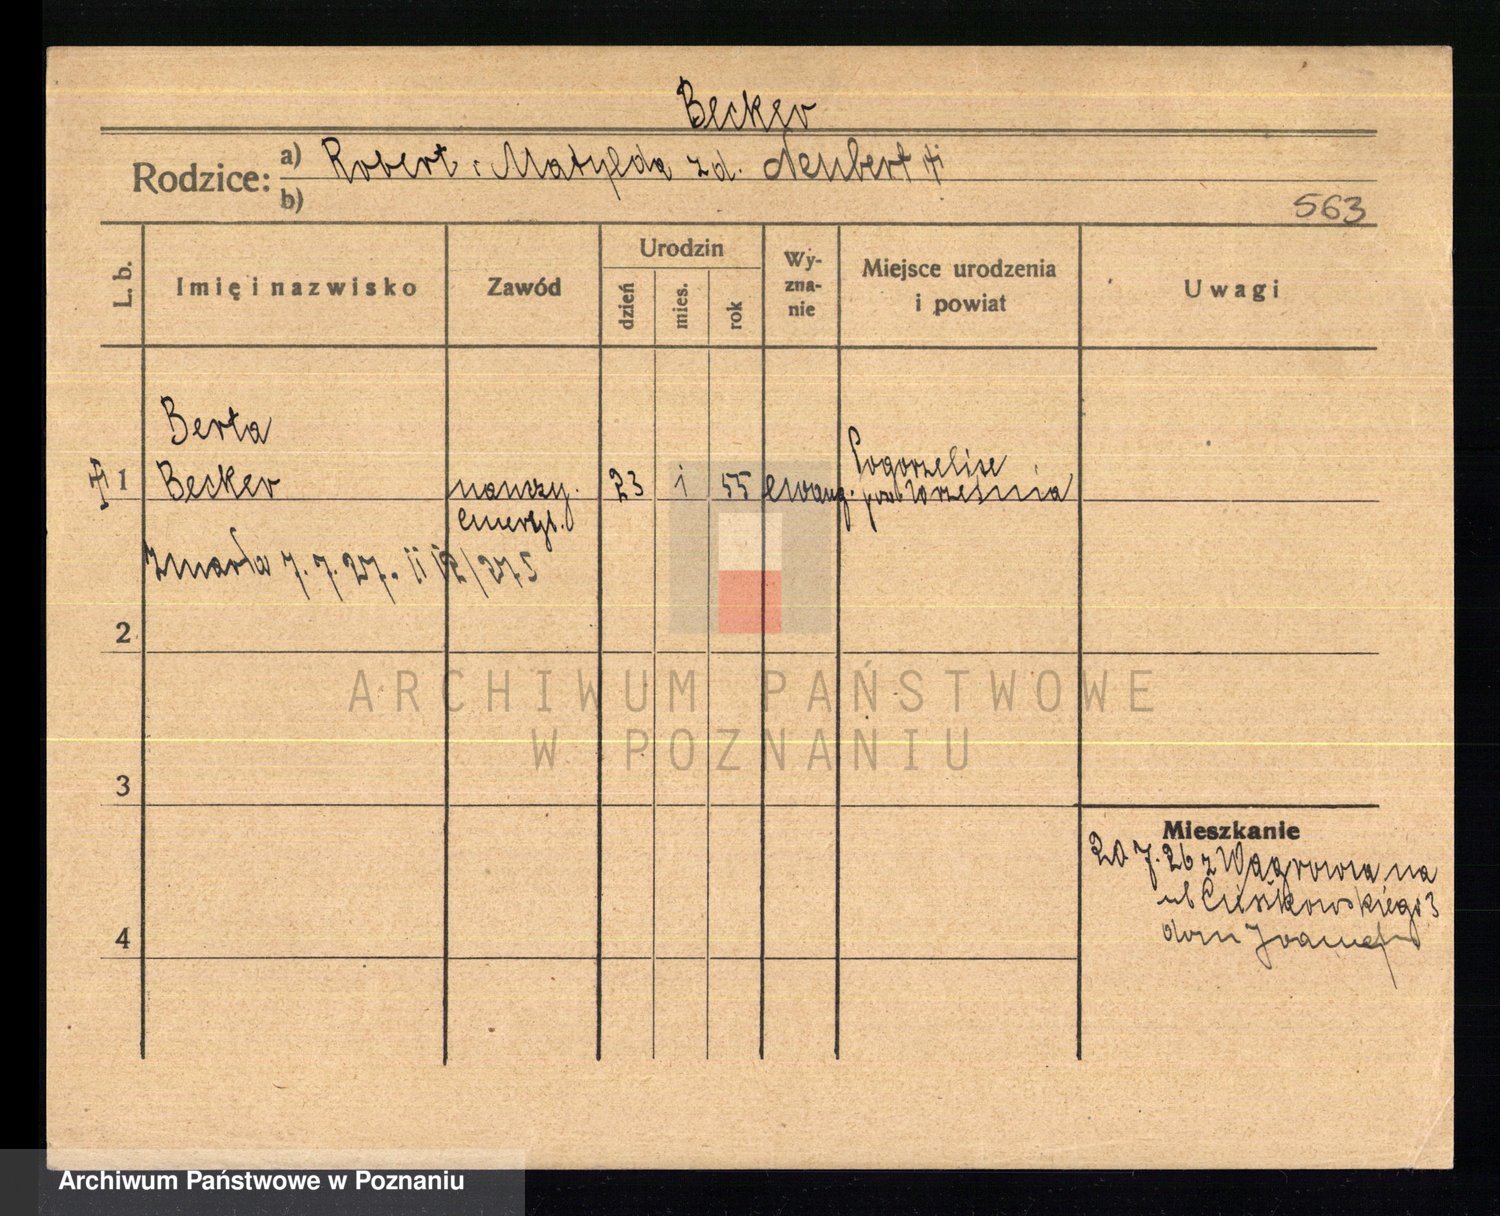 Becker
Rodzice: a) Robert i Matylda z d. Neubert
b)
563
L. b.
Imię i nazwisko
Zawód
Urodzin
dzień
mies.
rok
Wy-
zna-
nie
Miejsce urodzenia
i powiat
Uwagi
Berta
1 Becker nauczy. 23 1 55 ewang.
emeryt.
Pogorzelice
pow Września
Zmarła 7. 7. 27.
2
3
4
Mieszkanie
20 7. 26 z Wągrowca na
dom
ARCHIWUM PAŃSTWOWE
W POZNANIU
Archiwum Państwowe w Poznaniu